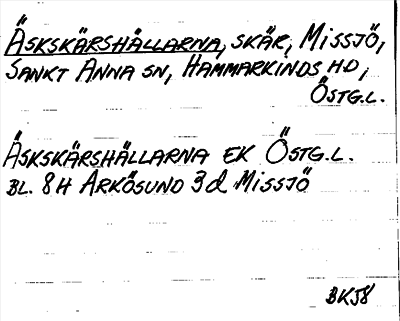 Äskskärshällarna, skär, Missjö,
Sankt Anna sn, Hammarkinds hd,
Östg.l.
Äskskärshällarna EK Östg.l.
bl. 8H Arkösund 3d Missjö
BK58